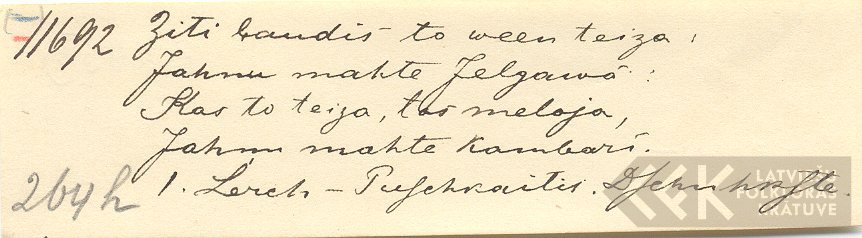 11692 Ziti ļaudis to ween teiza:
Jahņu mahte Jelgawâ:
Kas to teiza, tas meloja,
Jahņu mahte kambarî.
264h 1. Lerch-Puschkaitis.
LATVIEŠU
FOLKLORAS
KRĀTUVE